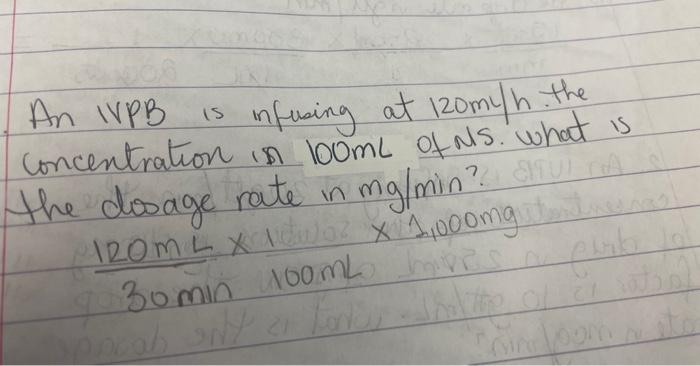 An IVPB is infusing at 120mL/h. the
concentration is 100mL of NS. what is
the dosage rate in mg/min?
120mL x 1 x 1,000mg
30min 100mL